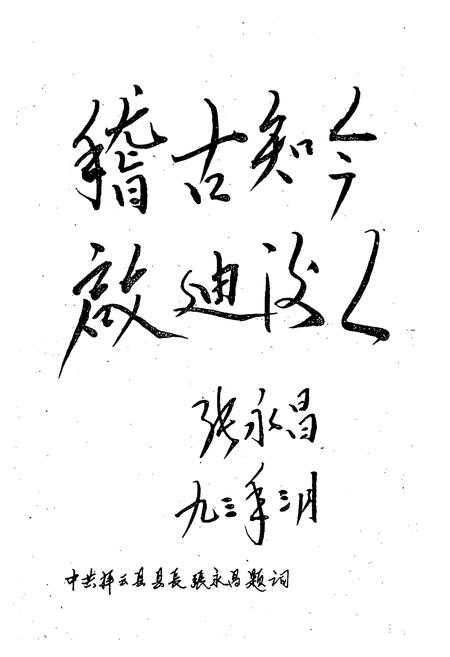 稽古知今
啟迪後人
张永昌
九三年三月
中共祥云县县長張永昌题词